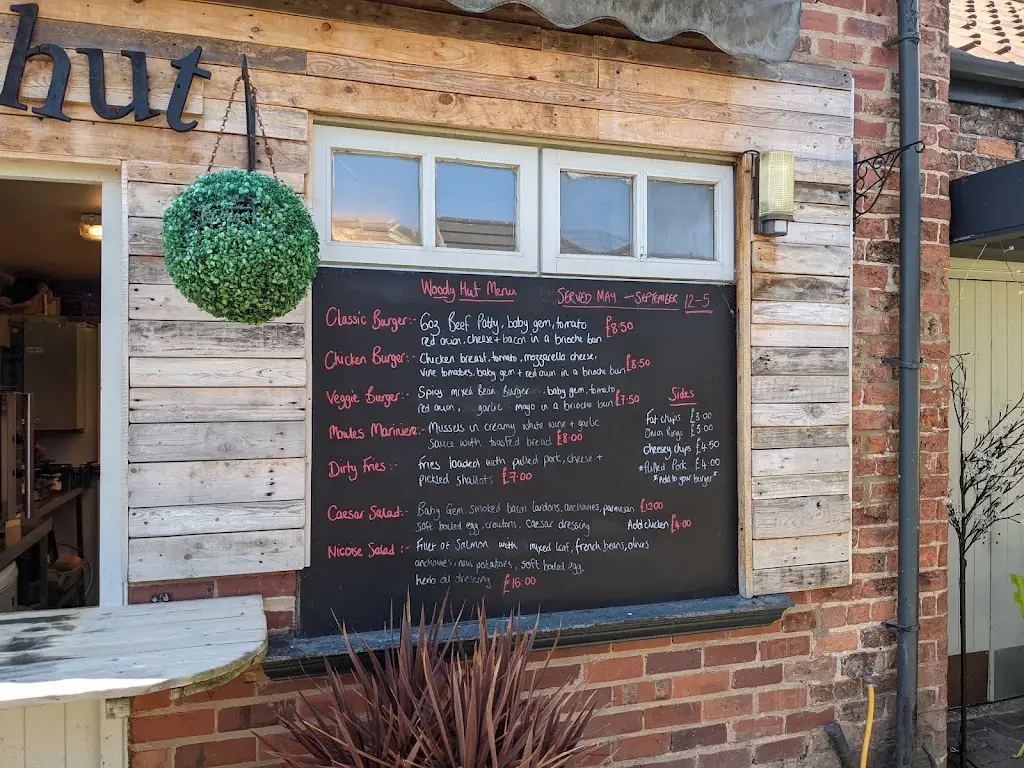 hut
Woody Hut Menu
SERVED MAY - SEPTEMBER 12-5
Classic Burger:- 6oz Beef Patty, baby gem, tomato
red onion, cheese + bacon in a brioche bun £8.50
Chicken Burger:- Chicken breast, tomato, mozzarella cheese,
vine tomatoes, baby gem + red onion in a brioche bun £8.50
Veggie Burger:- Spicy mixed Bean Burger, baby gem, tomato
red onion, garlic mayo in a brioche bun £7.50
Moules Mariniere:- Mussels in creamy white wine + garlic
sauce with toasted bread £8.00
Dirty Fries:- Fries loaded with pulled pork, cheese +
pickled shallots £7.00
Caesar Salad:- Baby Gem, smoked bacon lardons, anchovies, parmesan £12.00
soft boiled egg, croutons, Caesar dressing Add chicken £4.00
Nicoise Salad:- Fillet of Salmon with mixed leaf, french beans, olives
anchovies, new potatoes, soft boiled egg,
herb oil dressing £16.00
Sides
Fat chips £3.00
Onion Rings £3.00
Cheesey chips £4.50
*Pulled Pork £4.00
*Add to your burger*